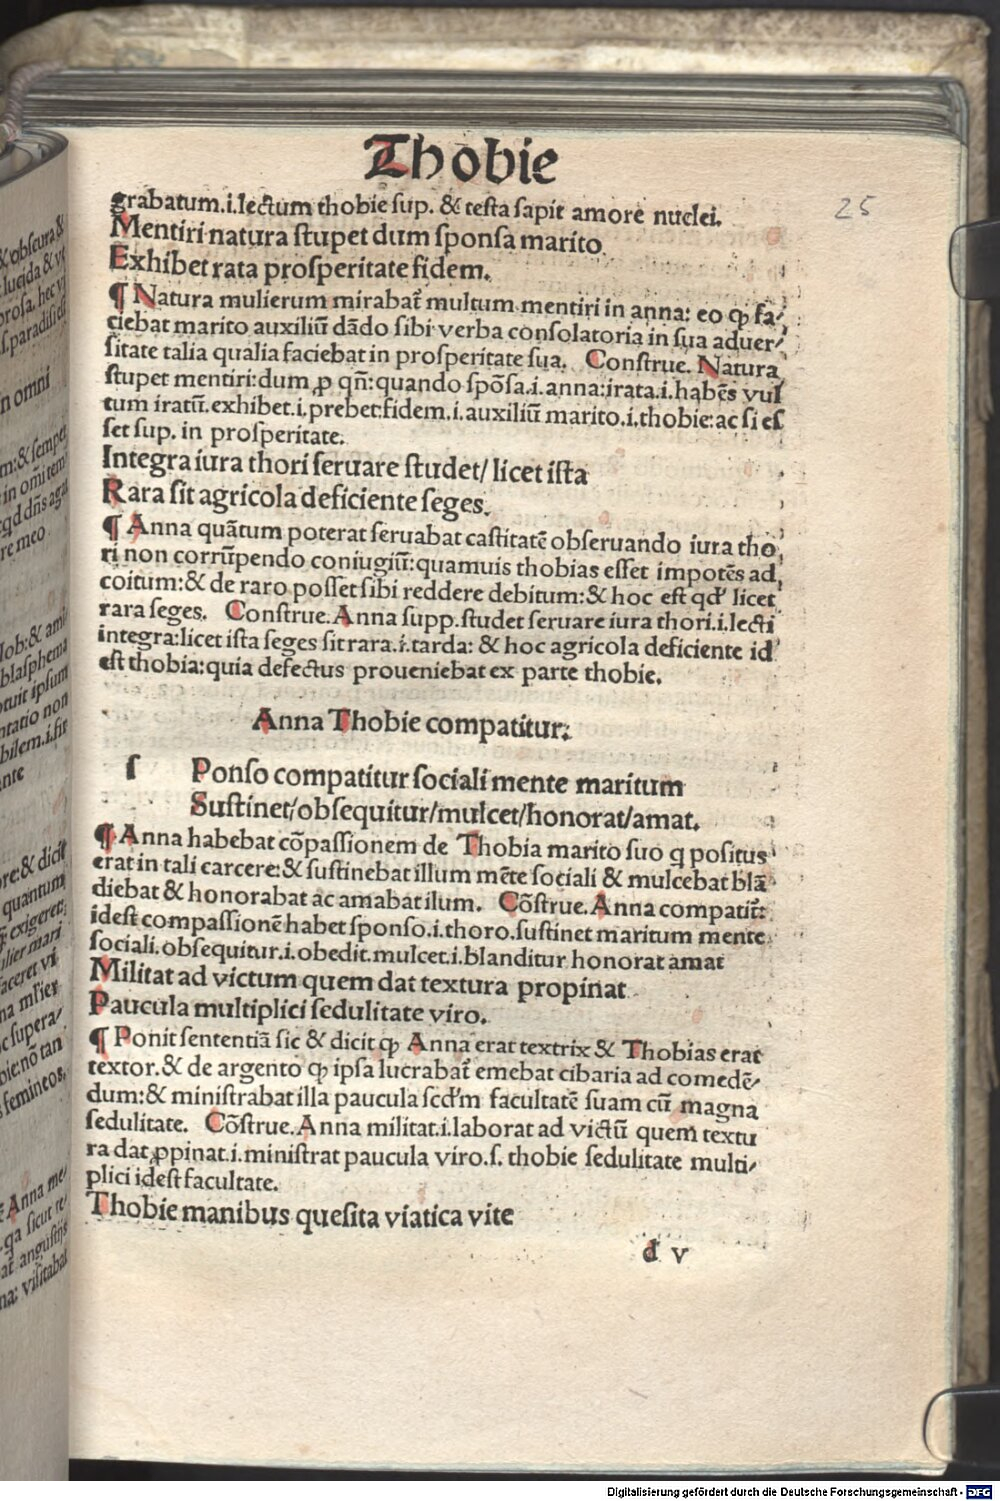 Thobie
25
grabatum.i.lectum thobie sup. & testa sapit amore nuclei.
Mentiri natura stupet dum sponsa marito
Exhibet rata prosperitate fidem.
¶ Natura mulierum mirabat᷑ multum mentiri in anna: eo ꝙ fa⸗
ciebat marito auxiliū dādo sibi verba consolatoria in sua aduer⸗
sitate talia qualia faciebat in prosperitate sua. Construe. Natura
stupet mentiri:dum ꝓ qñ:quando spōsa.i.anna:irata.i.habēs vul
tum iratū.exhibet.i.prebet:fidem.i.auxiliū marito.i.thobie:ac si es
set sup. in prosperitate.
Integra iura thori seruare studet/ licet ista
Rara sit agricola deficiente seges.
¶ Anna quātum poterat seruabat castitatē obseruando iura tho
ri non corrūpendo coniugiū:quamuis thobias esset impotēs ad
coitum:& de raro posset sibi reddere debitum:& hoc est qd' licet
rara seges. Construe. Anna supp.studet seruare iura thori.i.lecti
integra:licet ista seges sit rara.i.tarda: & hoc agricola deficiente id
est thobia:quia defectus proueniebat ex parte thobie.
Anna Thobie compatitur.
s Ponso compatitur sociali mente maritum
Sustinet/obsequitur/mulcet/honorat/amat.
¶ Anna habebat cōpassionem de Thobia marito suo q positus
erat in tali carcere:& sustinebat illum mēte sociali & mulcebat blā
diebat & honorabat ac amabat ilum. Cōstrue. Anna compatit᷑:
idest compassionē habet sponso.i.thoro.sustinet maritum mente
sociali.obsequitur.i.obedit.mulcet.i.blanditur honorat amat
Militat ad victum quem dat textura propinat
Paucula multiplici sedulitate viro.
¶ Ponit sententiā sic & dicit ꝙ Anna erat textrix & Thobias erat
textor.& de argento ꝙ ipsa lucrabat᷑ emebat cibaria ad comedē⸗
dum:& ministrabat illa paucula scd'm facultatē suam cū magna
sedulitate. Cōstrue. Anna militat.i.laborat ad victū quem textu
ra dat ꝓpinat.i.ministrat paucula viro.s. thobie sedulitate multi⸗
plici idest facultate.
Thobie manibus quesita viatica vite
d v
Digitalisierung gefördert durch die Deutsche Forschungsgemeinschaft - DFG